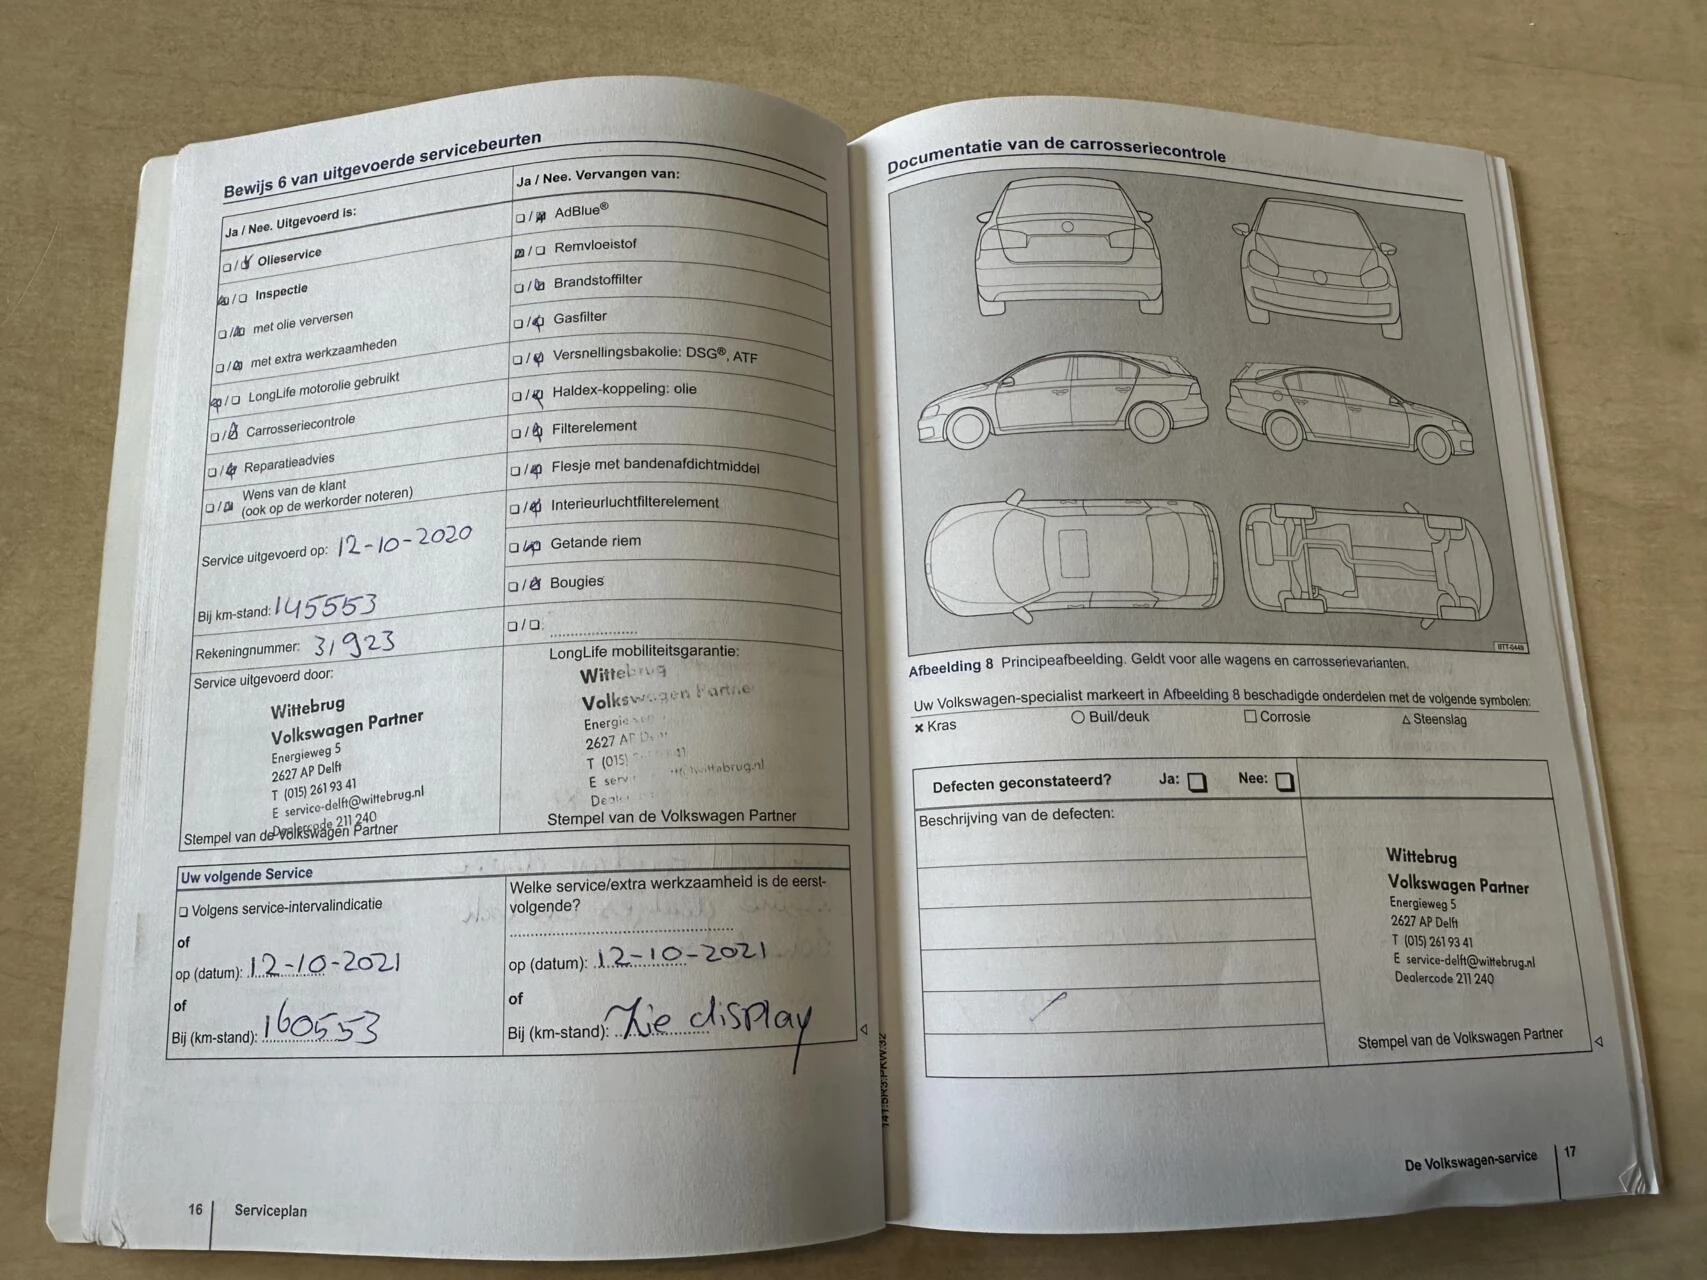 Bewijs 6 van uitgevoerde servicebeurten
Ja / Nee. Uitgevoerd is:
Olieservice
Inspectie
met olie verversen
met extra werkzaamheden
LongLife motorolie gebruikt
Carrosseriecontrole
Reparatieadvies
Wens van de klant
(ook op de werkorder noteren)
Service uitgevoerd op: 12-10-2020
Bij km-stand: 145553
Rekeningnummer: 31923
Service uitgevoerd door:
Wittebrug
Volkswagen Partner
Energieweg 5
2627 AP Delft
T (015) 261 93 41
E service-delft@wittebrug.nl
Dealercode 211 240
Stempel van de Volkswagen Partner
Ja / Nee. Vervangen van:
AdBlue®
Remvloeistof
Brandstoffilter
Gasfilter
Versnellingsbakolie: DSG®, ATF
Haldex-koppeling: olie
Filterelement
Flesje met bandenafdichtmiddel
Interieurluchtfilterelement
Getande riem
Bougies
LongLife mobiliteitsgarantie:
Wittebrug
Volkswagen Partner
2627 AP
T (015)
Stempel van de Volkswagen Partner
Uw volgende Service
Volgens service-intervalindicatie
of
op (datum): 12-10-2021
of
Bij (km-stand): 160553
Welke service/extra werkzaamheid is de eerst-
volgende?
op (datum): 12-10-2021
of
Bij (km-stand): Zie display
16 Serviceplan
Documentatie van de carrosseriecontrole
BTT-0449
Afbeelding 8 Principeafbeelding. Geldt voor alle wagens en carrosserievarianten.
Uw Volkswagen-specialist markeert in Afbeelding 8 beschadigde onderdelen met de volgende symbolen:
Kras Buil/deuk Corrosie Steenslag
Defecten geconstateerd? Ja: Nee:
Beschrijving van de defecten:
Wittebrug
Volkswagen Partner
Energieweg 5
2627 AP Delft
T (015) 261 93 41
E service-delft@wittebrug.nl
Dealercode 211 240
Stempel van de Volkswagen Partner
De Volkswagen-service 17